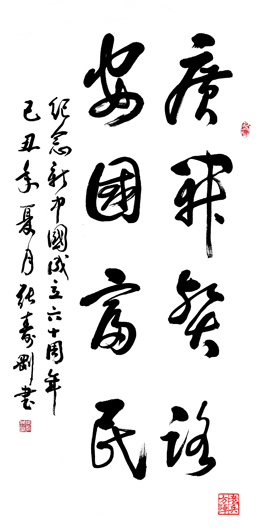 廣辟賢路
安國富民
紀念新中國成立六十周年
己丑年夏月張壽剛書